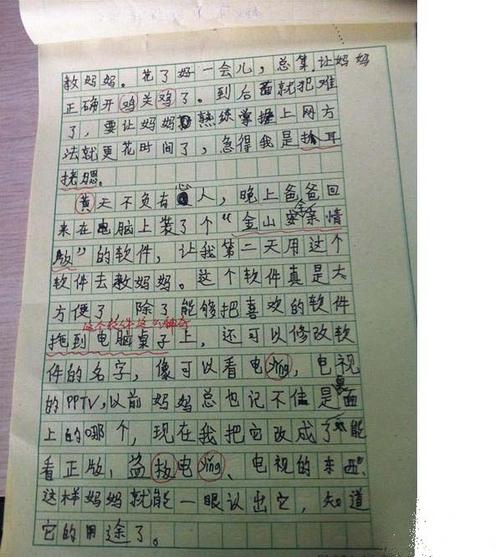 教妈妈。花了好一会儿，总集让妈妈
正确开鸡关鸡了。到后面就犯难
了，要让妈妈熟练掌握上网方
法就更花时间了，急得我是抓耳
挠腮。
黄天不负有心人，晚上爸爸回
来在电脑上装了个“金山安全亲情
版”的软件，让我第二天用这个
软件去教妈妈。这个软件真是太
方便了，除了能够把喜欢的软件
拖到电脑桌子上，还可以修改软
件的名字，像可以看电ying，电视
的PPTV，以前妈妈总也记不住是桌面
上的哪个，现在我把它改成了“能
看正版，盗板电ying、电视的东西”
这样妈妈就能一眼认出它，知道
它的用途了。